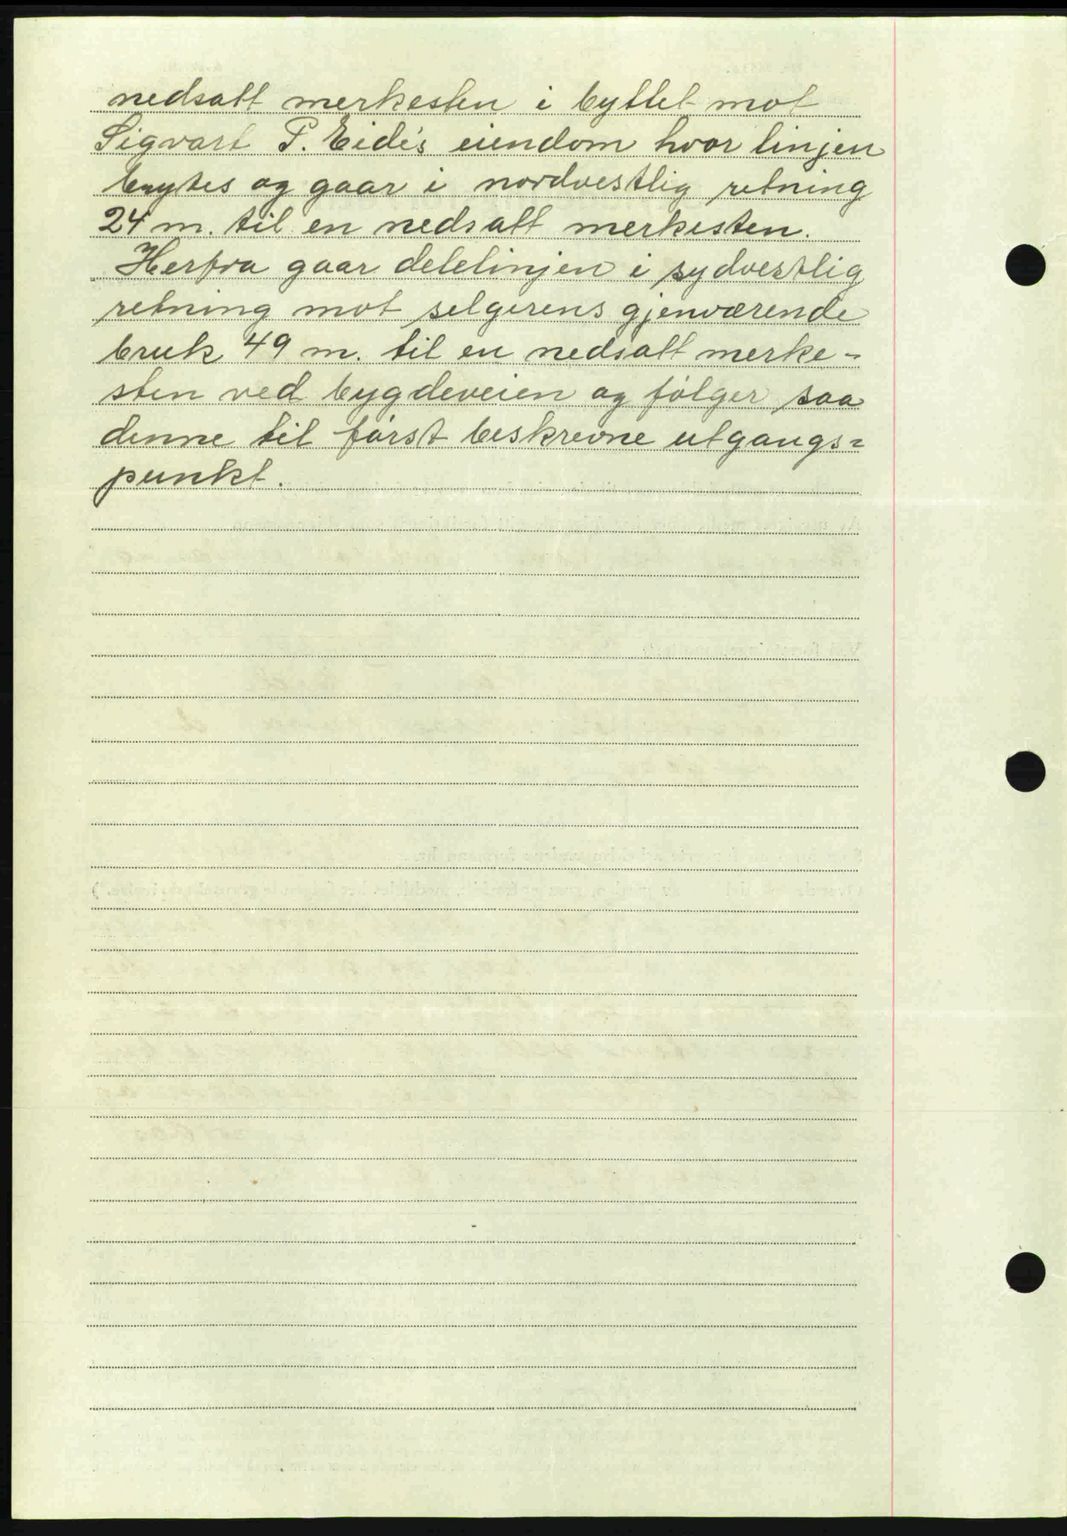 nedsatt merkesten i byttet mot
Sigvart P. Eide's eiendom hvor linjen
brytes og gaar i nordvestlig retning
24 m. til en nedsatt merkesten.
Herfra gaar delelinjen i sydvestlig
retning mot selgerens gjenværende
bruk 49 m. til en nedsatt merke-
sten ved bygdeveien og følger saa
denne til først beskrevne utgangs=
punkt.